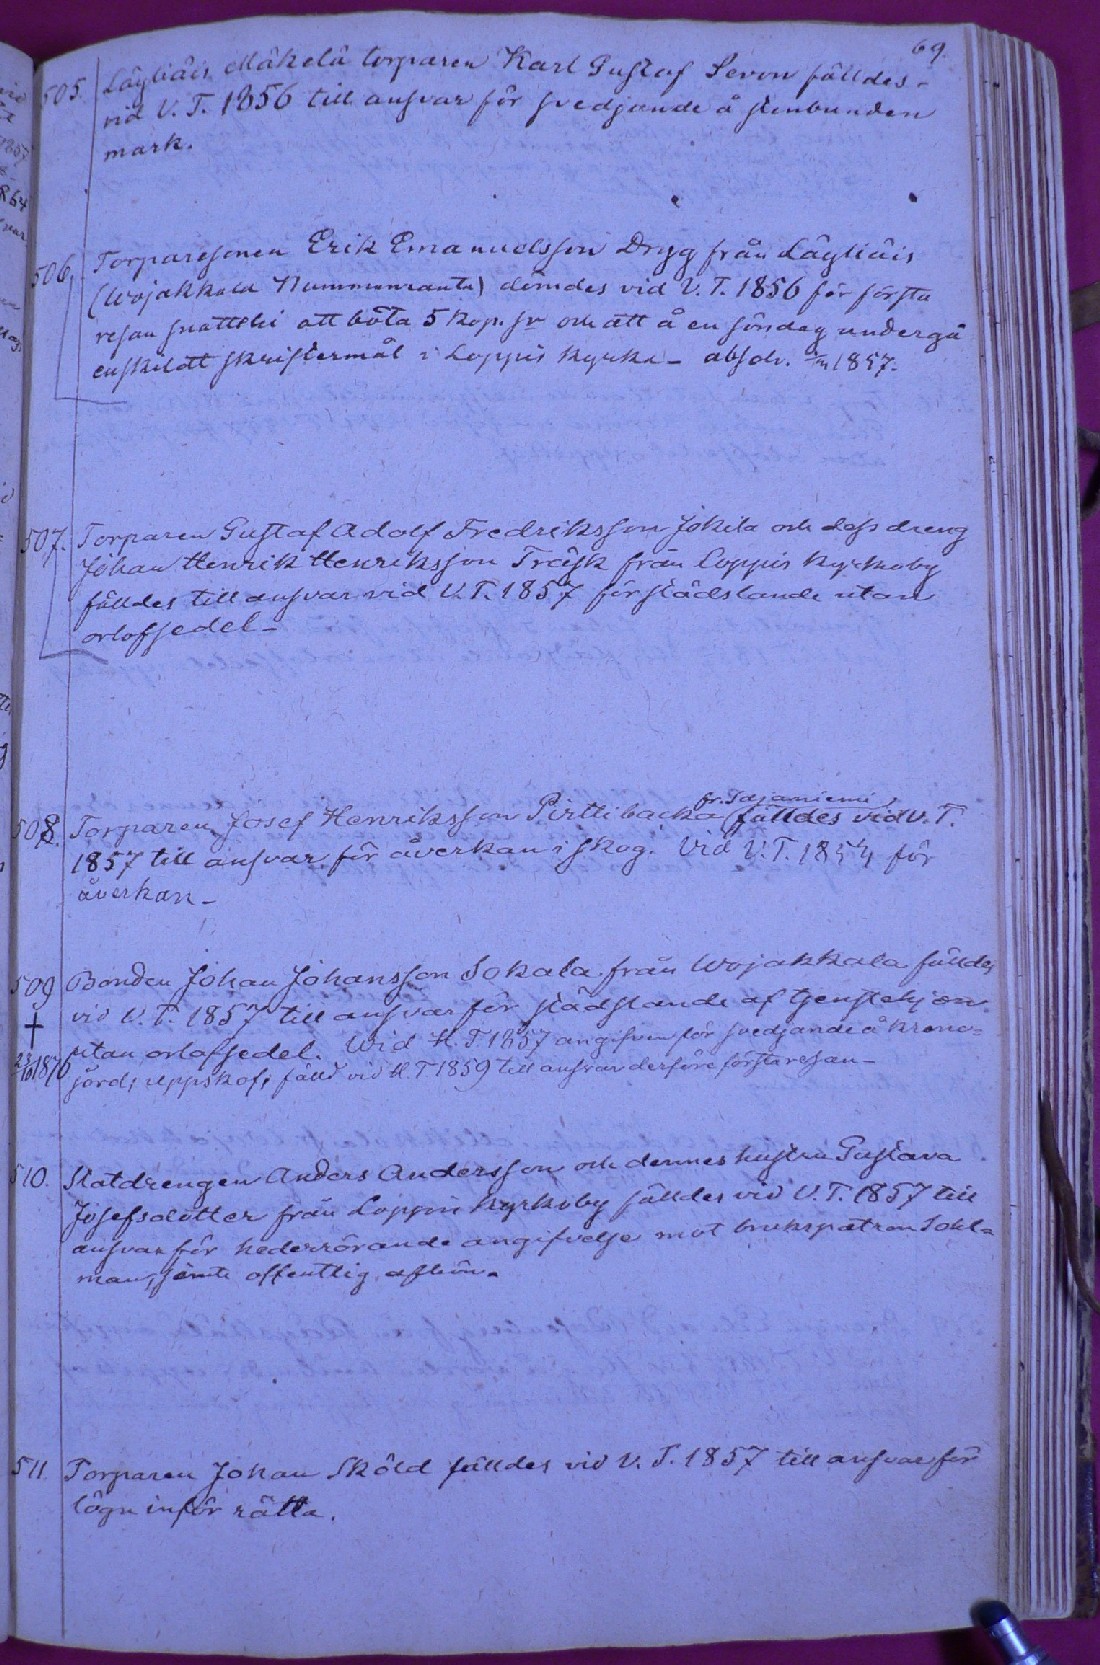 69.
505. Läyliäis Mäkelä torparen Karl Gustaf Sevon fälldes
vid V. T. 1856 till ansvar för svedjande å stenbunden
mark.
506. Torparesonen Erik Emanuelsson Drygg från Läyliäis
(Wojakkala Nummenranta) dömdes vid V. T. 1856 för första
resan snatteri att böta 5 kop. sr och att å en söndag undergå
enskildt skriftermål i Loppis kyrka _ absolv. 1857.
507. Torparen Gustaf Adolf Fredriksson Jokila och dess dreng
Johan Henrik Henriksson Träsk från Loppis kyrkoby
fälldes till ansvar vid V. T. 1857 för städslande utan
orlofsedel _
fr. Sajaniemi
508. Torparen Josef Henriksson Pirttibacka fälldes vid V. T.
1857 till ansvar för åverkan i skog. Vid V. T. 1854 för
åverkan _
509 Bonden Johan Johansson Sokala från Wojakkala fälldes
vid V. T. 1857 till ansvar för städslande af tjenstehjon
utan orlofsedel. Wid H. T. 1857 angifven för svedjande å krono=
1876 jord, uppskof, fälld vid H. T 1859 till ansvar derföre första resan _
510. Statdrengen Anders Andersson och dennes hustru Gustava
Josefsdotter från Loppis kyrkoby fälldes vid V. T. 1857 till
ansvar för hederrörande angifvelse mot brukspatron Sohl=
man, jemte offentlig afbön.
511. Torparen Johan Sköld fälldes vid V. T. 1857 till ansvar för
lögn inför rätta.